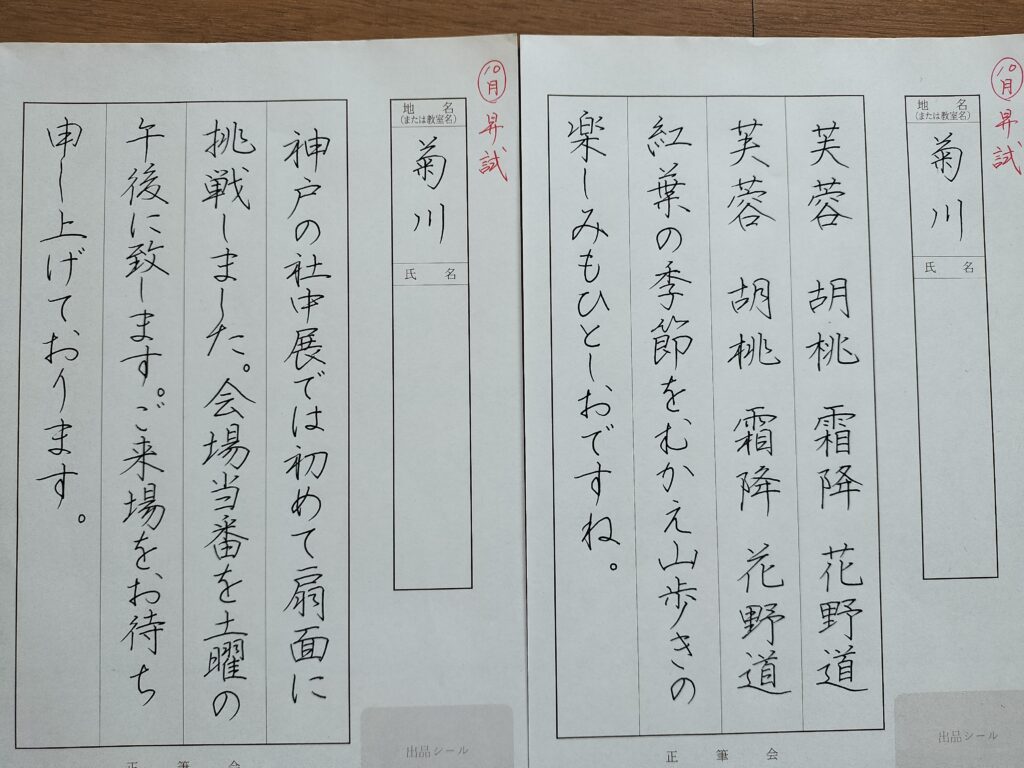 10月 昇試
地名
(または教室名)
菊川
氏名
芙蓉 胡桃 霜降 花野道
芙蓉 胡桃 霜降 花野道
紅葉の季節をむかえ山歩きの
楽しみもひとしおですね。
出品シール
正筆会
10月 昇試
地名
(または教室名)
菊川
氏名
神戸の社中展では初めて扇面に
挑戦しました。会場当番を土曜の
午後に致します。ご来場をお待ち
申し上げております。
出品シール
正筆会